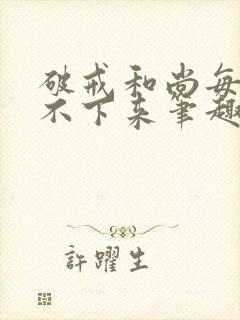 破戒和尚每
不下来笔趣
許躍生